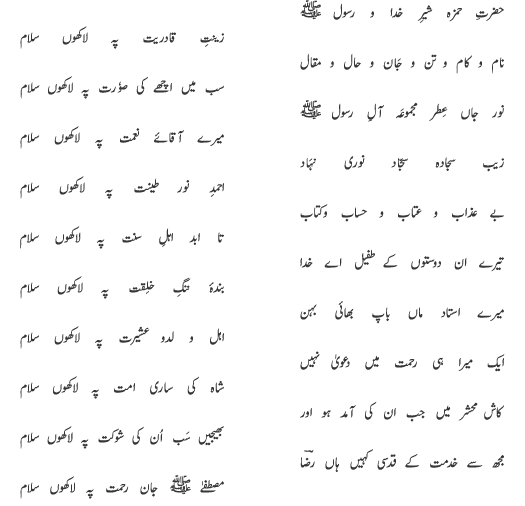 حضرتِ حمزہ شیرِ خدا و رسول ﷺ
زینتِ قادریت پہ لاکھوں سلام
نام و کام و تن و جَان و حال و مقال
سب میں اچھے کی صوٗرت پہ لاکھوں سلام
نور جاں عِطر مجموعَہ آلِ رسول ﷺ
میرے آقائے نعمت پہ لاکھوں سلام
زیب سجادہ سجّاد نوری نہاد
احمدِ نور طینت پہ لاکھوں سلام
بے عذاب و عتاب و حساب وکتاب
تا ابد اہلِ سنت پہ لاکھوں سلام
تیرے ان دوستوں کے طفیل اے خدا
بندۂ ننگِ خِلقت پہ لاکھوں سلام
میرے استاد ماں باپ بھائی بہن
اہل و لدو عشیرت پہ لاکھوں سلام
ایک میرا ہی رحمت میں دعویٰ نہیں
شاہ کی ساری امت پہ لاکھوں سلام
کاش محشر میں جب ان کی آمد ہو اور
بھیجیں سَب اُن کی شوکت پہ لاکھوں سلام
مجھ سے خدمت کے قدسی کہیں ہاں رضؔا
مصطفےٰ ﷺ جان رحمت پہ لاکھوں سلام